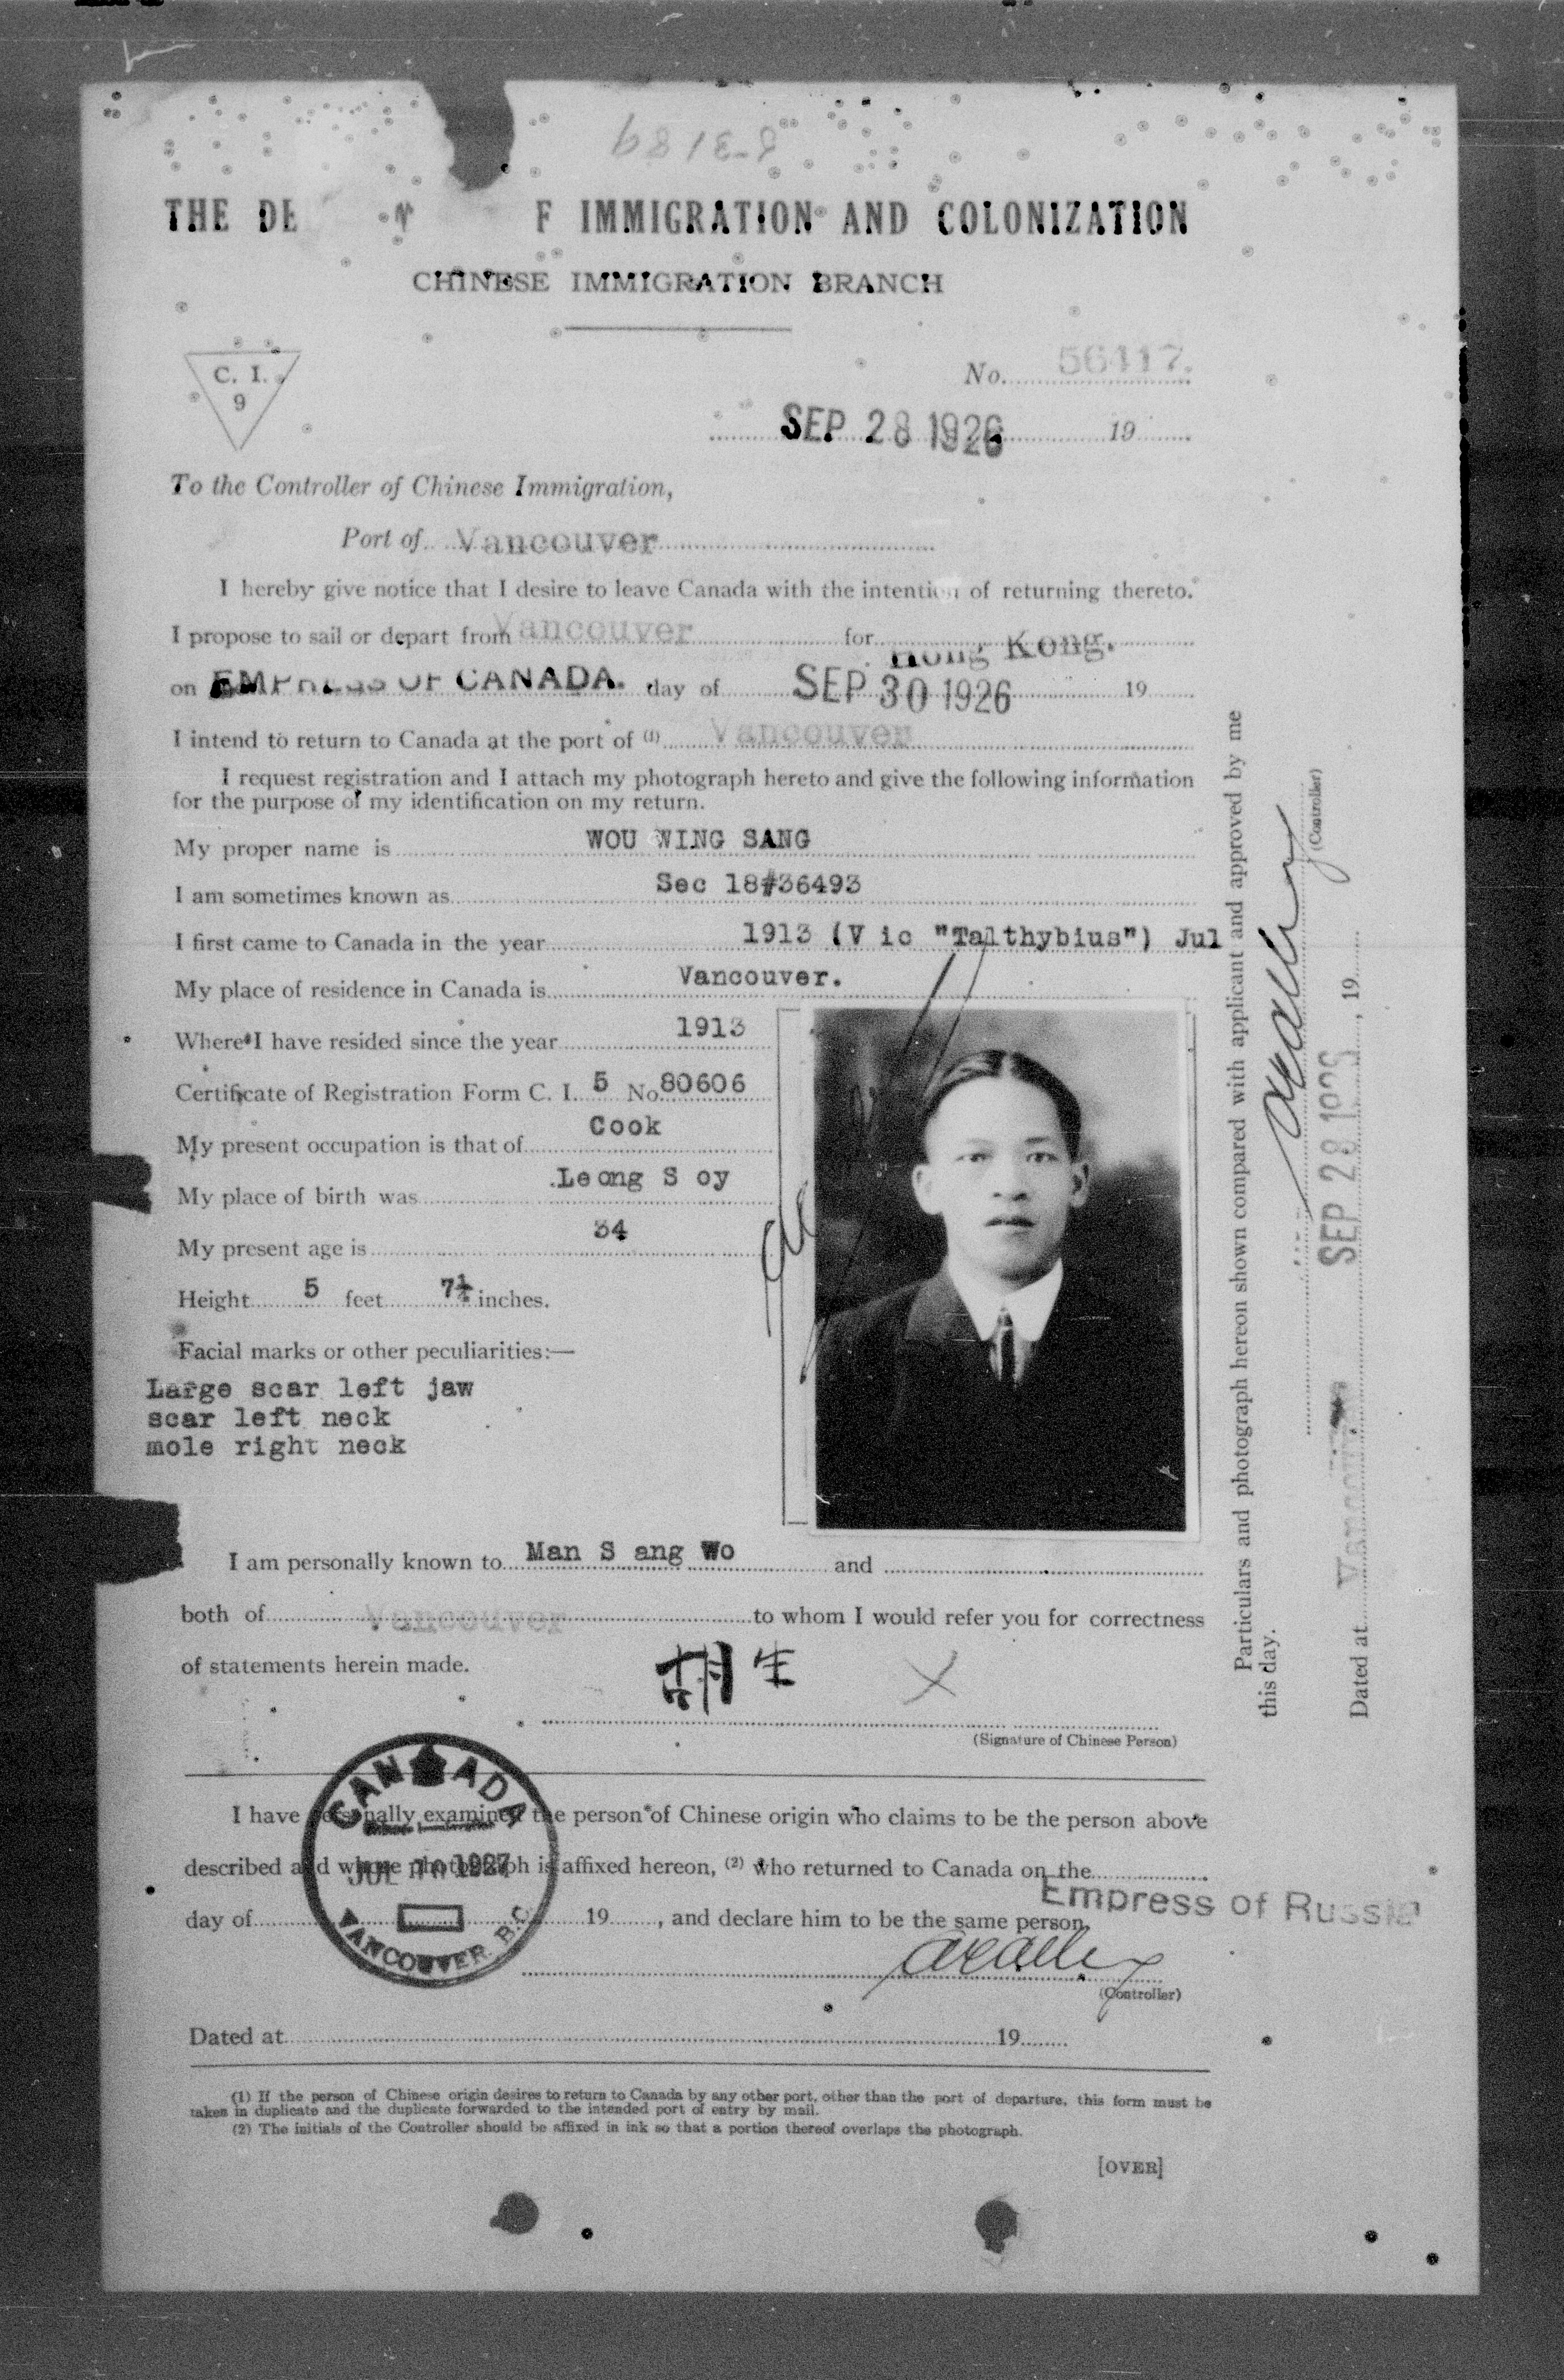 THE DE F IMMIGRATION AND COLONIZATION
CHINESE IMMIGRATION BRANCH
C. I.
9
No. 56417.
SEP 28 1926 19
To the Controller of Chinese Immigration,
Port of Vancouver
I hereby give notice that I desire to leave Canada with the intention of returning thereto.
I propose to sail or depart from Vancouver for Hong Kong.
on EMPRESS OF CANADA. day of SEP 30 1926 19
I intend to return to Canada at the port of (1) Vancouver
I request registration and I attach my photograph hereto and give the following information
for the purpose of my identification on my return.
My proper name is WOU WING SANG
I am sometimes known as Sec 18#36493
I first came to Canada in the year 1913 (V ic "Talthybius") Jul
My place of residence in Canada is Vancouver.
Where I have resided since the year 1913
Certificate of Registration Form C. I. 5 No 80606
My present occupation is that of Cook
My place of birth was Leong S oy
My present age is 34
Height 5 feet 7½ inches.
Facial marks or other peculiarities:—
Large scar left jaw
scar left neck
mole right neck
I am personally known to Man S ang Wo and
both of Vancouver to whom I would refer you for correctness
of statements herein made.
胡生 X
(Signature of Chinese Person)
I have personally examined the person of Chinese origin who claims to be the person above
described and whose photograph is affixed hereon, (2) who returned to Canada on the
day of 19 , and declare him to be the same person.
Empress of Russia
(Controller)
Dated at 19
CANADA
JUL 1927
VANCOUVER. B.C.
(1) If the person of Chinese origin desires to return to Canada by any other port, other than the port of departure, this form must be
taken in duplicate and the duplicate forwarded to the intended port of entry by mail.
(2) The initials of the Controller should be affixed in ink so that a portion thereof overlaps the photograph.
[OVER]
Particulars and photograph hereon shown compared with applicant and approved by me
this day.
(Controller)
Dated at Vancouver SEP 28 1926 , 19